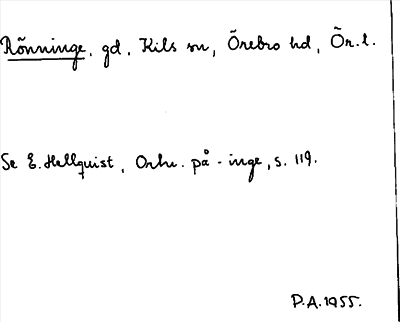 Rönninge. gd. Kils sn, Örebro hd, Ör.l.
Se E. Hellquist, Ortn. på -inge, s. 119.
P.A. 1955.